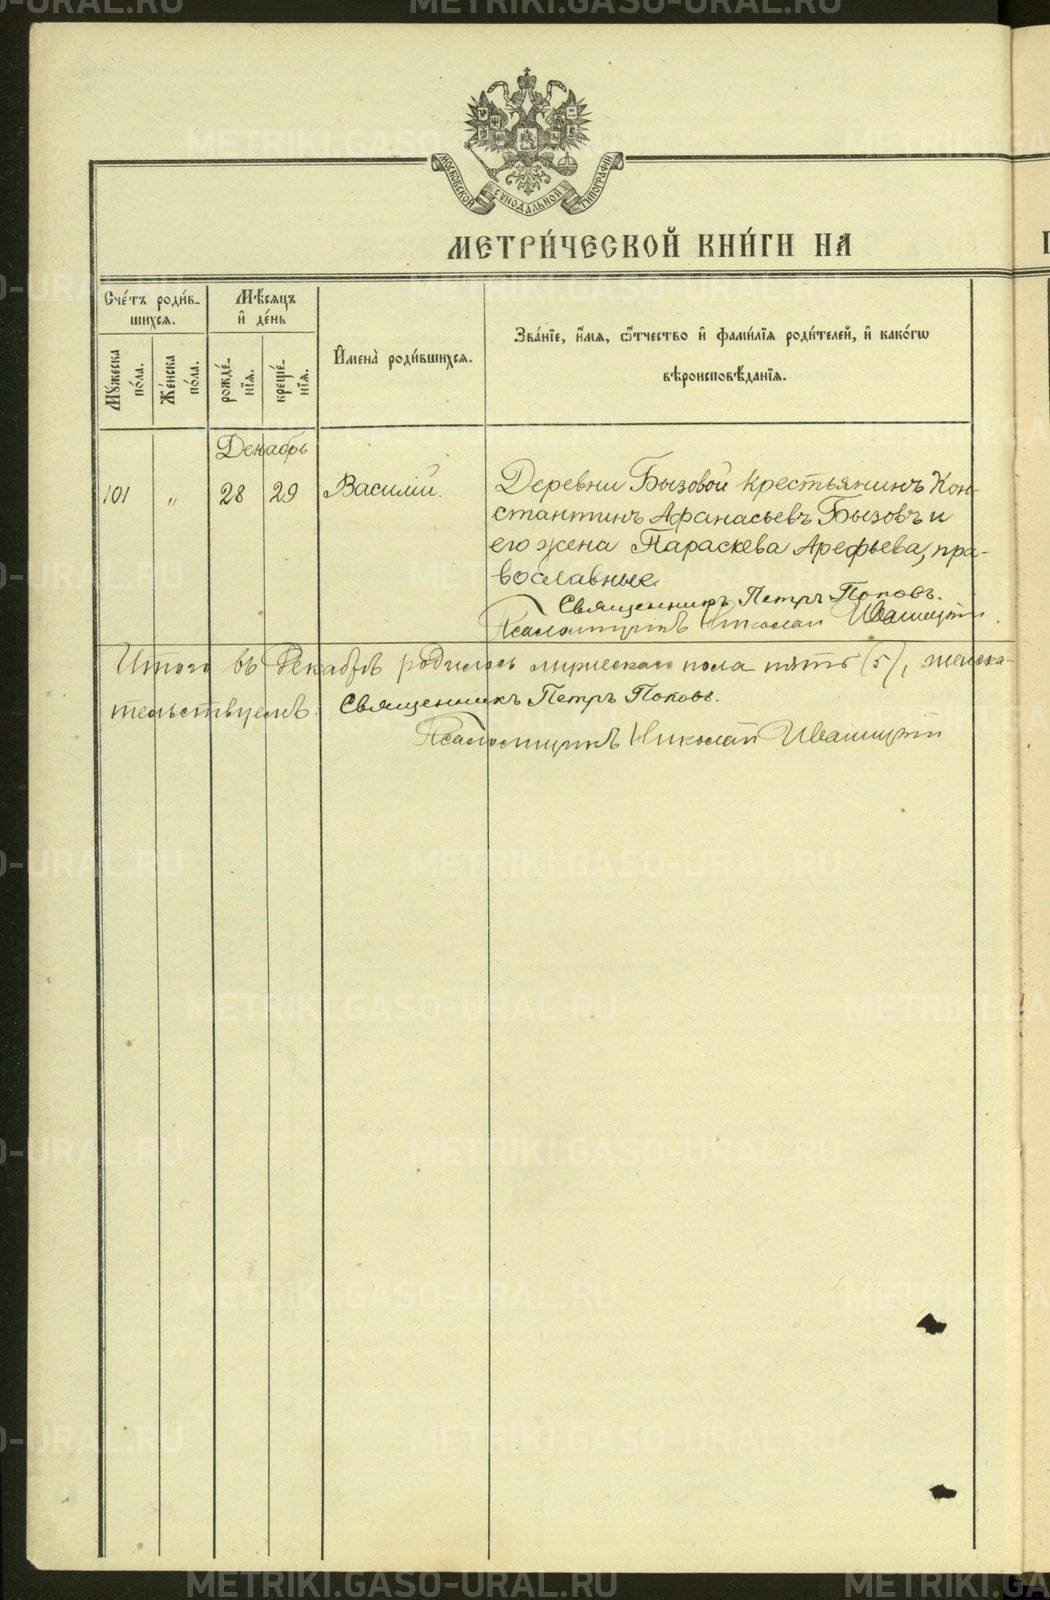 МОСКОВСКОЙ СУНОДАЛЬНОЙ ТИПОГРАФІИ
МЕТРИ́ЧЕСКОЙ КНИ́ГИ НА
Сче́тъ роди́в-
шихся.
Мꙋ́жеска
по́ла.
Же́нска
по́ла.
Мѣ́сяцъ
и҆ де́нь
рожде́-
нїя.
креще́-
нїя.
И҆мена̀ роди́вшихся.
Зва́нїе, и҆́мя, ѻ҆́тчество и҆ фами́лїя роди́телей, и҆ како́гѡ
вѣроисповѣ́данїя.
Декабрь
101 " 28 29 Василій.
Деревни Бызовой крестьянинъ Кон-
стантинъ Афанасьевъ Бызовъ и
его жена Параскева Арефьева, пра-
вославные
Священникъ Петръ Поповъ.
Псаломщикъ Николай Ивашкевич
Итого въ Декабрѣ родилось мужескаго пола пять (5), женска-
тельствуемъ: Священникъ Петръ Поповъ.
Псаломщикъ Николай
METRIKI.GASO-URAL.RU